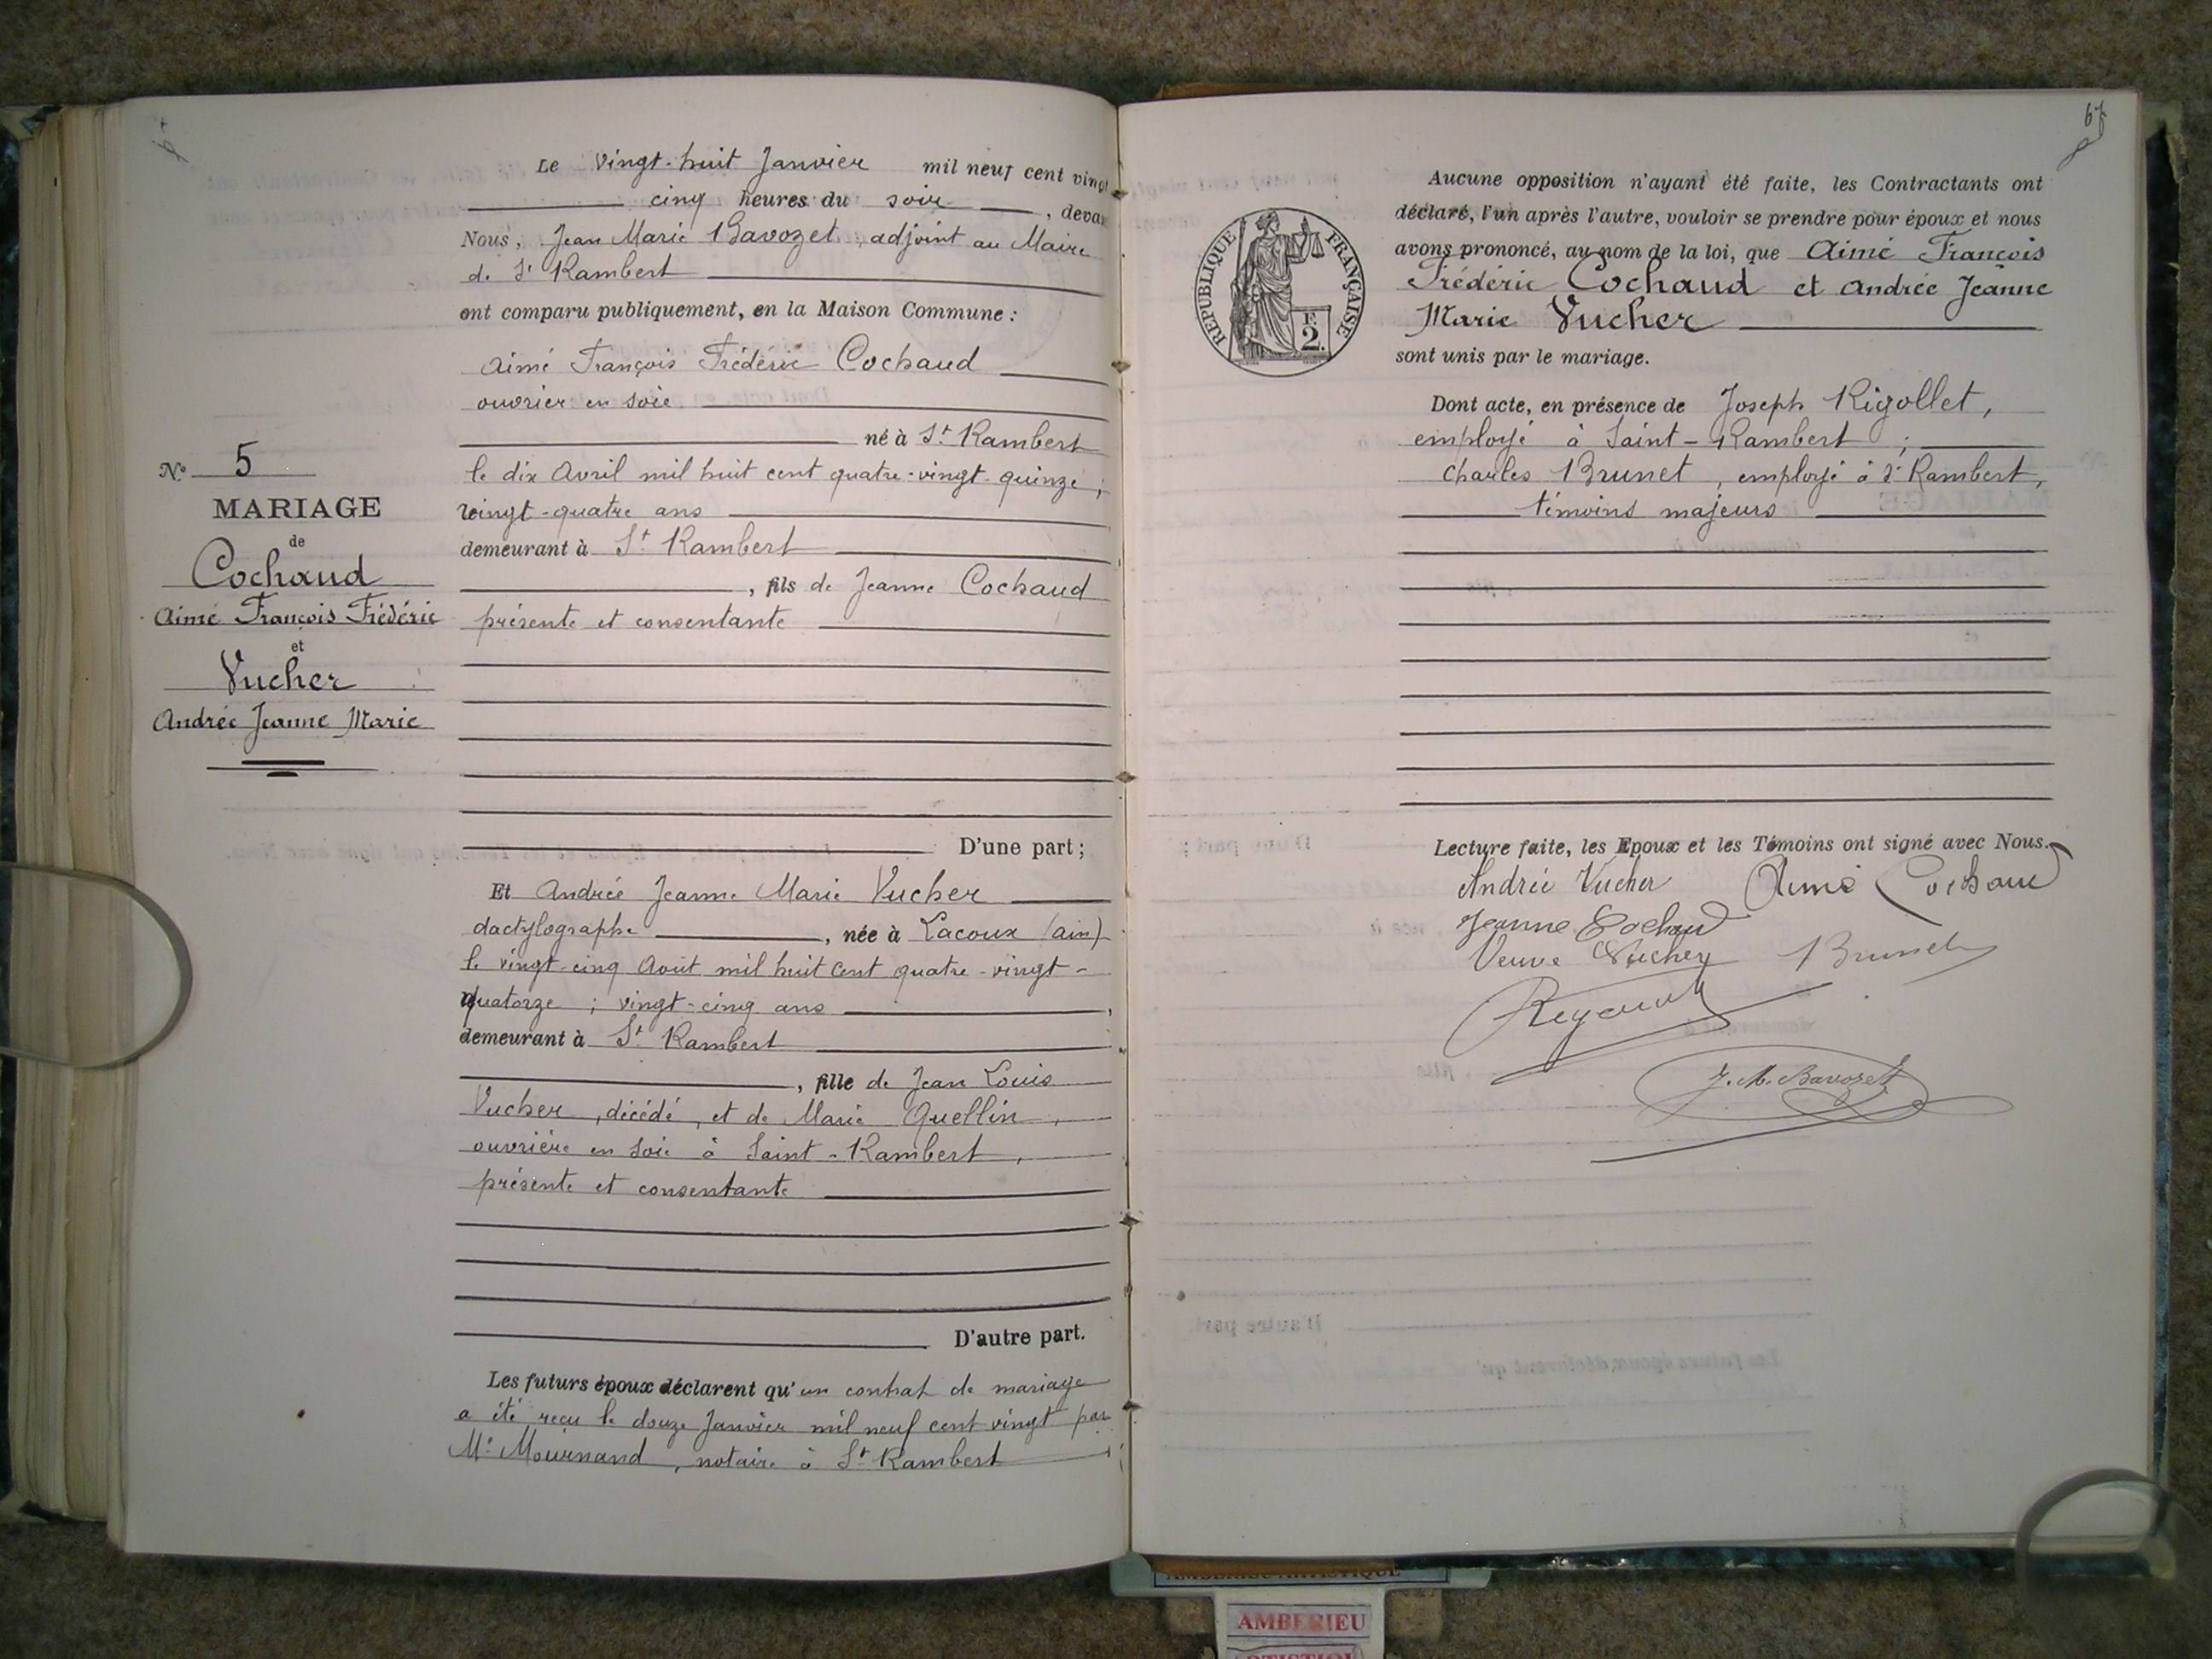 Le Vingt-huit Janvier mil neuf cent vingt
cinq heures du soir, deva
Nous, Jean Marie Bavozet, adjoint au Maire
de St Rambert
ont comparu publiquement, en la Maison Commune :
Aimé François Frédéric Cochaud
ouvrier en soie
né à St Rambert
le dix Avril mil huit cent quatre-vingt-quinze ;
vingt-quatre ans
demeurant à St Rambert
, fils de Jeanne Cochaud
présente et consentante
D'une part ;
Et Andrée Jeanne Marie Vucher
dactylographe, née à Lacoux (ain)
le vingt-cinq Août mil huit cent quatre-vingt-
quatorze ; vingt-cinq ans,
demeurant à St Rambert
, fille de Jean Louis
Vucher, décédé, et de Marie Quellin,
ouvrière en soie à Saint-Rambert,
présente et consentante
D'autre part.
Les futurs époux déclarent qu'un contrat de mariage
a été reçu le douze Janvier mil neuf cent vingt par
Me Mournand, notaire à St Rambert
No 5
MARIAGE
de
Cochaud
Aimé François Frédéric
et
Vucher
Andrée Jeanne Marie
67
RÉPUBLIQUE FRANÇAISE
F.
2.
Aucune opposition n'ayant été faite, les Contractants ont
déclaré, l'un après l'autre, vouloir se prendre pour époux et nous
avons prononcé, au nom de la loi, que Aimé François
Frédéric Cochaud et Andrée Jeanne
Marie Vucher
sont unis par le mariage.
Dont acte, en présence de Joseph Rigollet,
employé à Saint-Rambert ;
Charles Brunet, employé à St Rambert,
témoins majeurs
Lecture faite, les Epoux et les Témoins ont signé avec Nous.
Andrée Vucher Aimé Cochaud
Jeanne Cochaud
Veuve Vucher Brunet
J. M. Bavozet
AMBERIEU